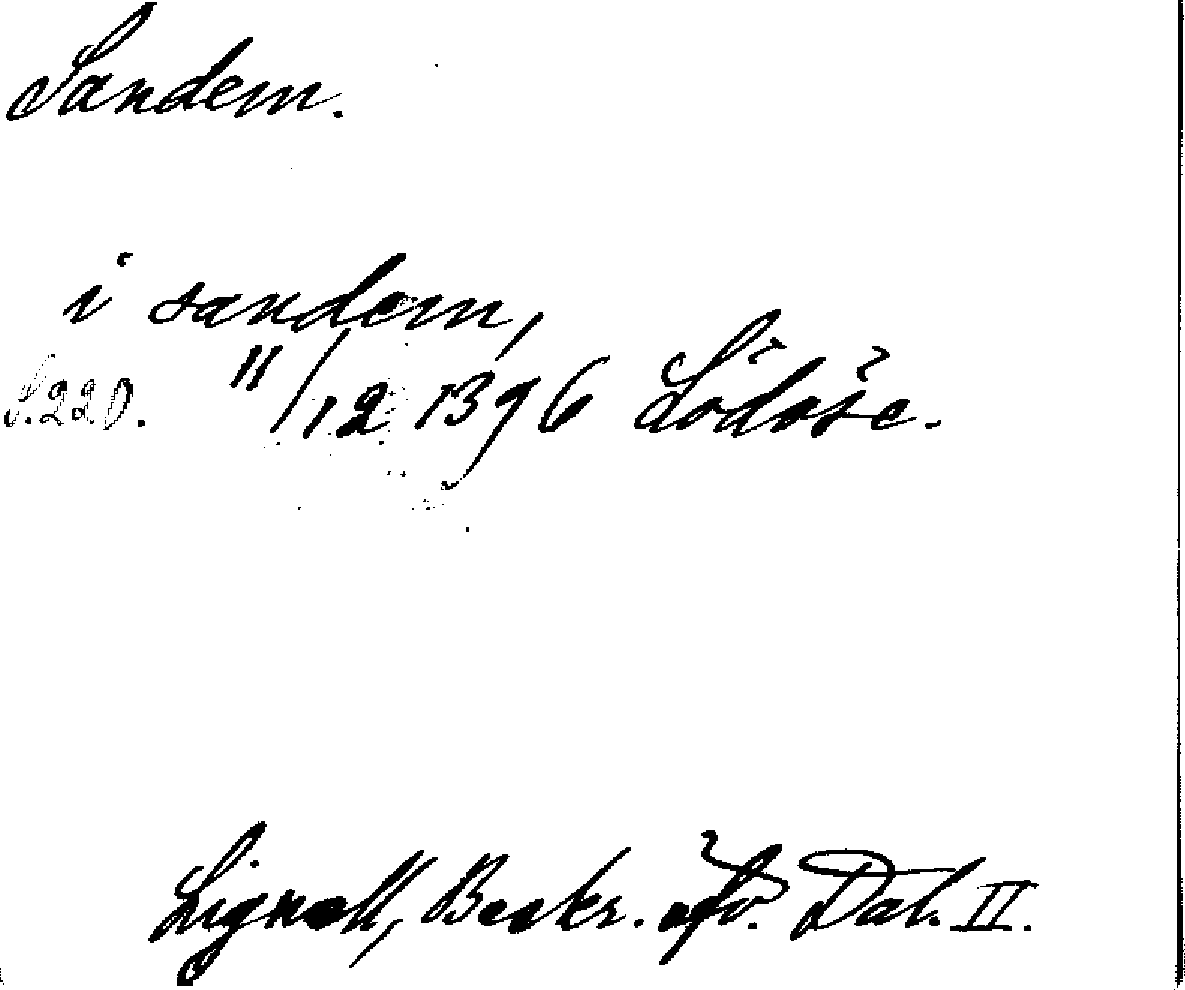 Sandem.
i sandem,
S. 220. 11/12 1396 Lödöse.
Lignell, Beskr. öfv. Dal. II.